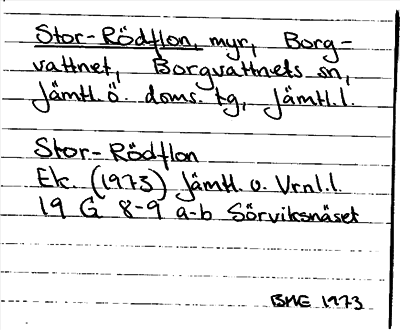 Stor-Rödflon, myr, Borg-
vattnet, Borgvattnets sn,
Jämtl. ö. doms. tg, Jämtl.l.
Stor-Rödflon
Ek. (1973) Jämtl. o. Vrnl.l.
19 G 8-9 a-b Sörviksnäset
BME 1973